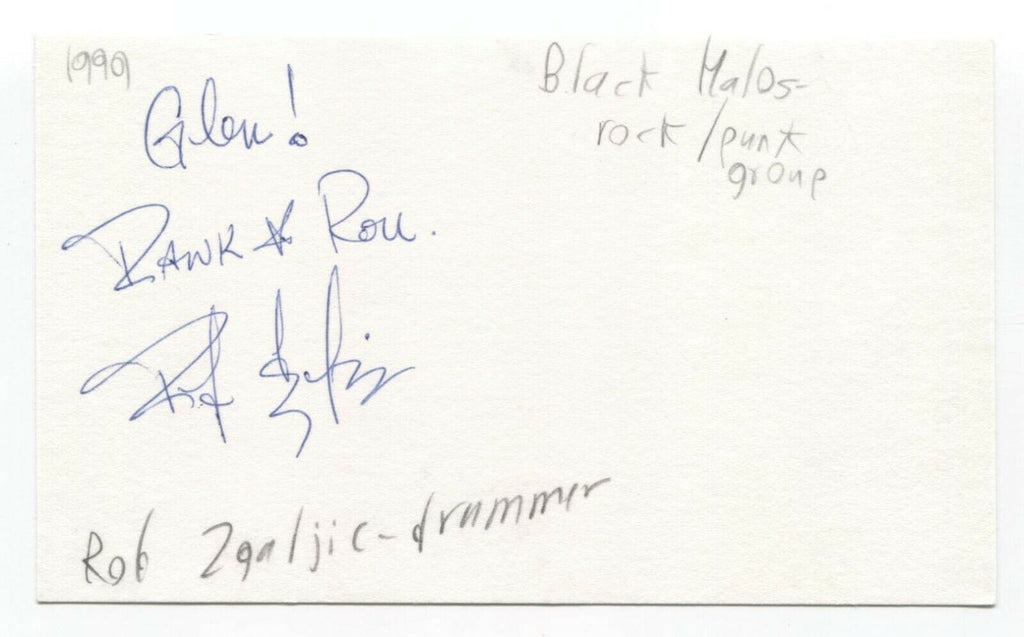 1999
Glen!
Rawk & Roll.
Black Halos-
rock/punk
group
Rob Zgaljic-drummer